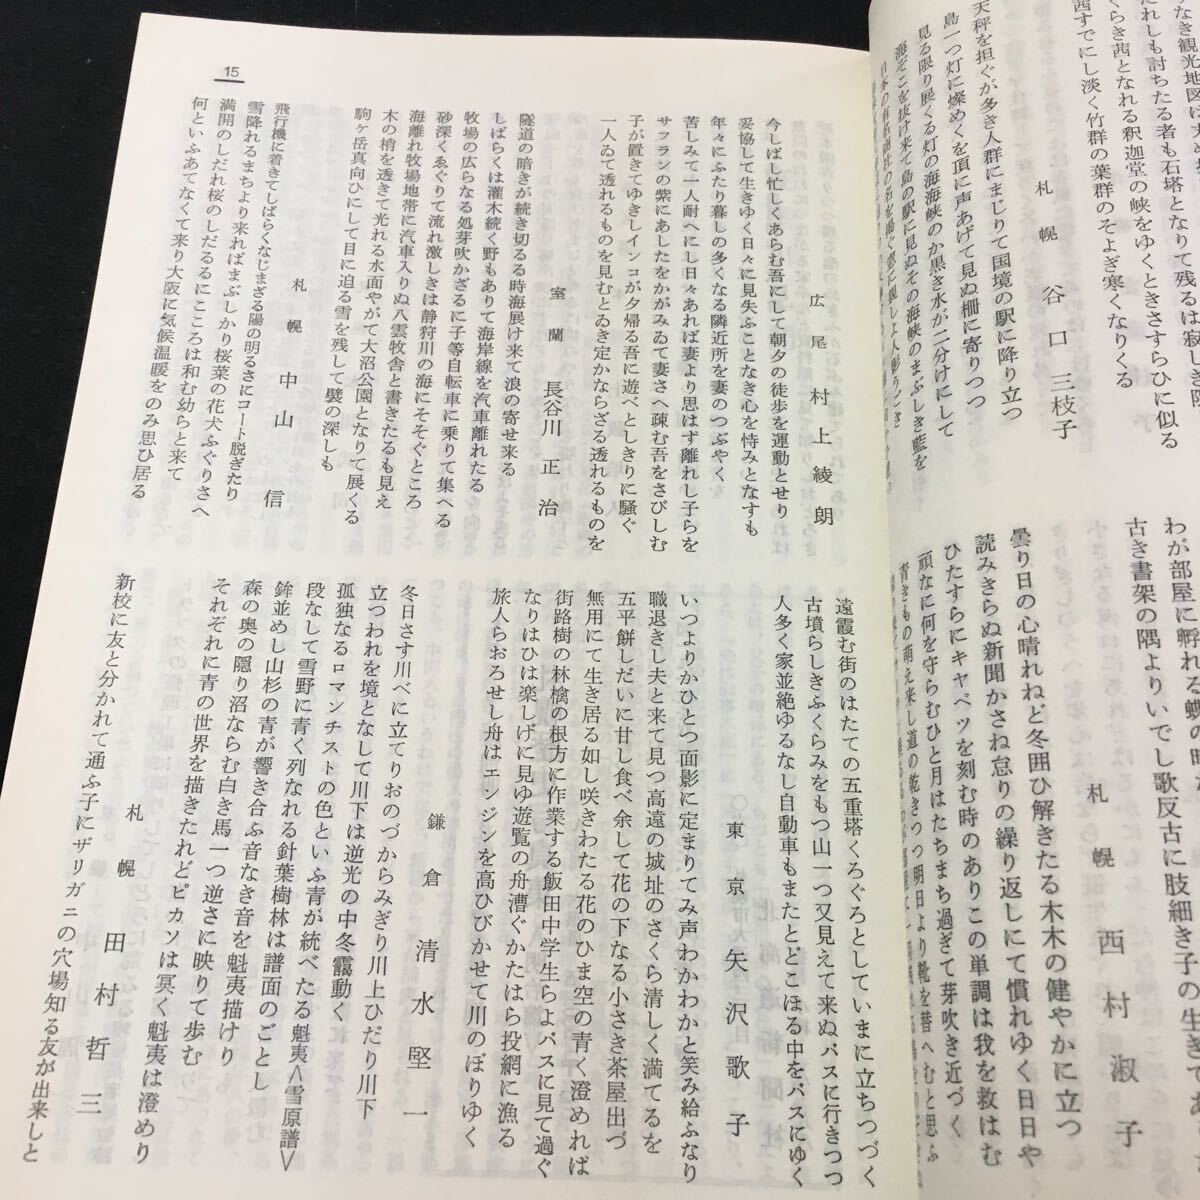 すなき観光地図は丈
たれしも討ちたる者も石塔となりて残るは寂し
くらき茜となれる釈迦堂の峡をゆくときさすらひに似る
茜すでにし淡く竹群の葉群のそよぎ寒くなりくる
札幌 谷口三枝子
天秤を担ぐが多き人群にまじりて国境の駅に降り立つ
島一つ灯に燦めくを頂に声あげて見ぬ柵に寄りつつ
見る限り展くる灯の海海峡のか黒き水が二分けにして
海ぞこを抜け来て島の駅に見ぬその海峡のまぶしき藍を
わが部屋に孵れる蝶の
古き書架の隅よりいでし歌反古に肢細き子の生きて
札幌 西村淑子
曇り日の心晴れねど冬囲ひ解きたる木木の健やかに立つ
読みきらぬ新聞かさね怠りの繰り返しにて慣れゆく日日や
ひたすらにキャベツを刻む時のありこの単調は我を救はむ
頑なに何を守らむひと月はたちまち過ぎて芽吹き近づく
青きもの萌え来し道の乾きつつ明日より靴を替へむと思ふ
15
広尾 村上綾朗
今しばし忙しくあらむ吾にして朝夕の徒歩を運動とせり
妥協して生きゆく日々に見失ふことなき心を恃みとなすも
年々にふたり暮しの多くなる隣近所を妻のつぶやく
苦しみて一人耐へにし日々あれば妻より思はず離れし子らを
サフランの紫にあしたをかがみゐて妻さへ疎む吾をさびしむ
子が置きてゆきしインコが夕帰る吾に遊べとしきりに騒ぐ
一人ゐて透れるものを見むとゐき定かならざる透れるものを
室蘭 長谷川正治
隧道の暗きが続き切るる時海展け来て浪の寄せ来る
しばらくは灌木続く野もありて海岸線を汽車離れたる
牧場の広らなる処芽吹かざるに子等自転車に乗りて集へる
砂深くゑぐりて流れ激しきは静狩川の海にそそぐところ
海離れ牧場地帯に汽車入りぬ八雲牧舎と書きたるも見え
木の梢を透きて光れる水面やがて大沼公園となりて展くる
駒ヶ岳真向ひにして目に迫る雪を残して襞の深しも
札幌 中山信
飛行機に着きてしばらくなじまざる陽の明るさにコート脱ぎたり
雪降れるまちより来ればまぶしかり桜菜の花犬ふぐりさへ
満開のしだれ桜のしだるるにこころは和む幼らと来て
何といふあてなくて来り大阪に気候温暖をのみ思ひ居る
遠霞む街のはたての五重塔くろぐろとしていまに立ちつづく
古墳らしきふくらみをもつ山一つ又見えて来ぬバスに行きつつ
人多く家並絶ゆるなし自動車もまたとどこほる中をバスにゆく
東京 矢沢歌子
いつよりかひとつ面影に定まりてみ声わかわかと笑み給ふなり
職退きし夫と来て見つ高遠の城址のさくら清しく満てるを
五平餅しだいに甘し食べ余して花の下なる小さき茶屋出づ
無用にて生き居る如し咲きわたる花のひま空の青く澄めれば
街路樹の林檎の根方に作業する飯田中学生らよバスに見て過ぐ
なりはひは楽しげに見ゆ遊覧の舟漕ぐかたはら投網に漁る
旅人らおろせし舟はエンジンを高ひびかせて川のぼりゆく
鎌倉 清水堅一
冬日さす川べに立てりおのづからみぎり川上ひだり川下
立つわれを境となして川下は逆光の中冬靄動く
孤独なるロマンチストの色といふ青が統べたる魁夷〈雪原譜〉
段なして雪野に青く列なれる針葉樹林は譜面のごとし
鉾並めし山杉の青が響き合ふ音なき音を魁夷描けり
森の奥の隠り沼ならむ白き馬一つ逆さに映りて歩む
それぞれに青の世界を描きたれどピカソは冥く魁夷は澄めり
札幌 田村哲三
新校に友と分かれて通ふ子にザリガニの穴場知る友が出来しと